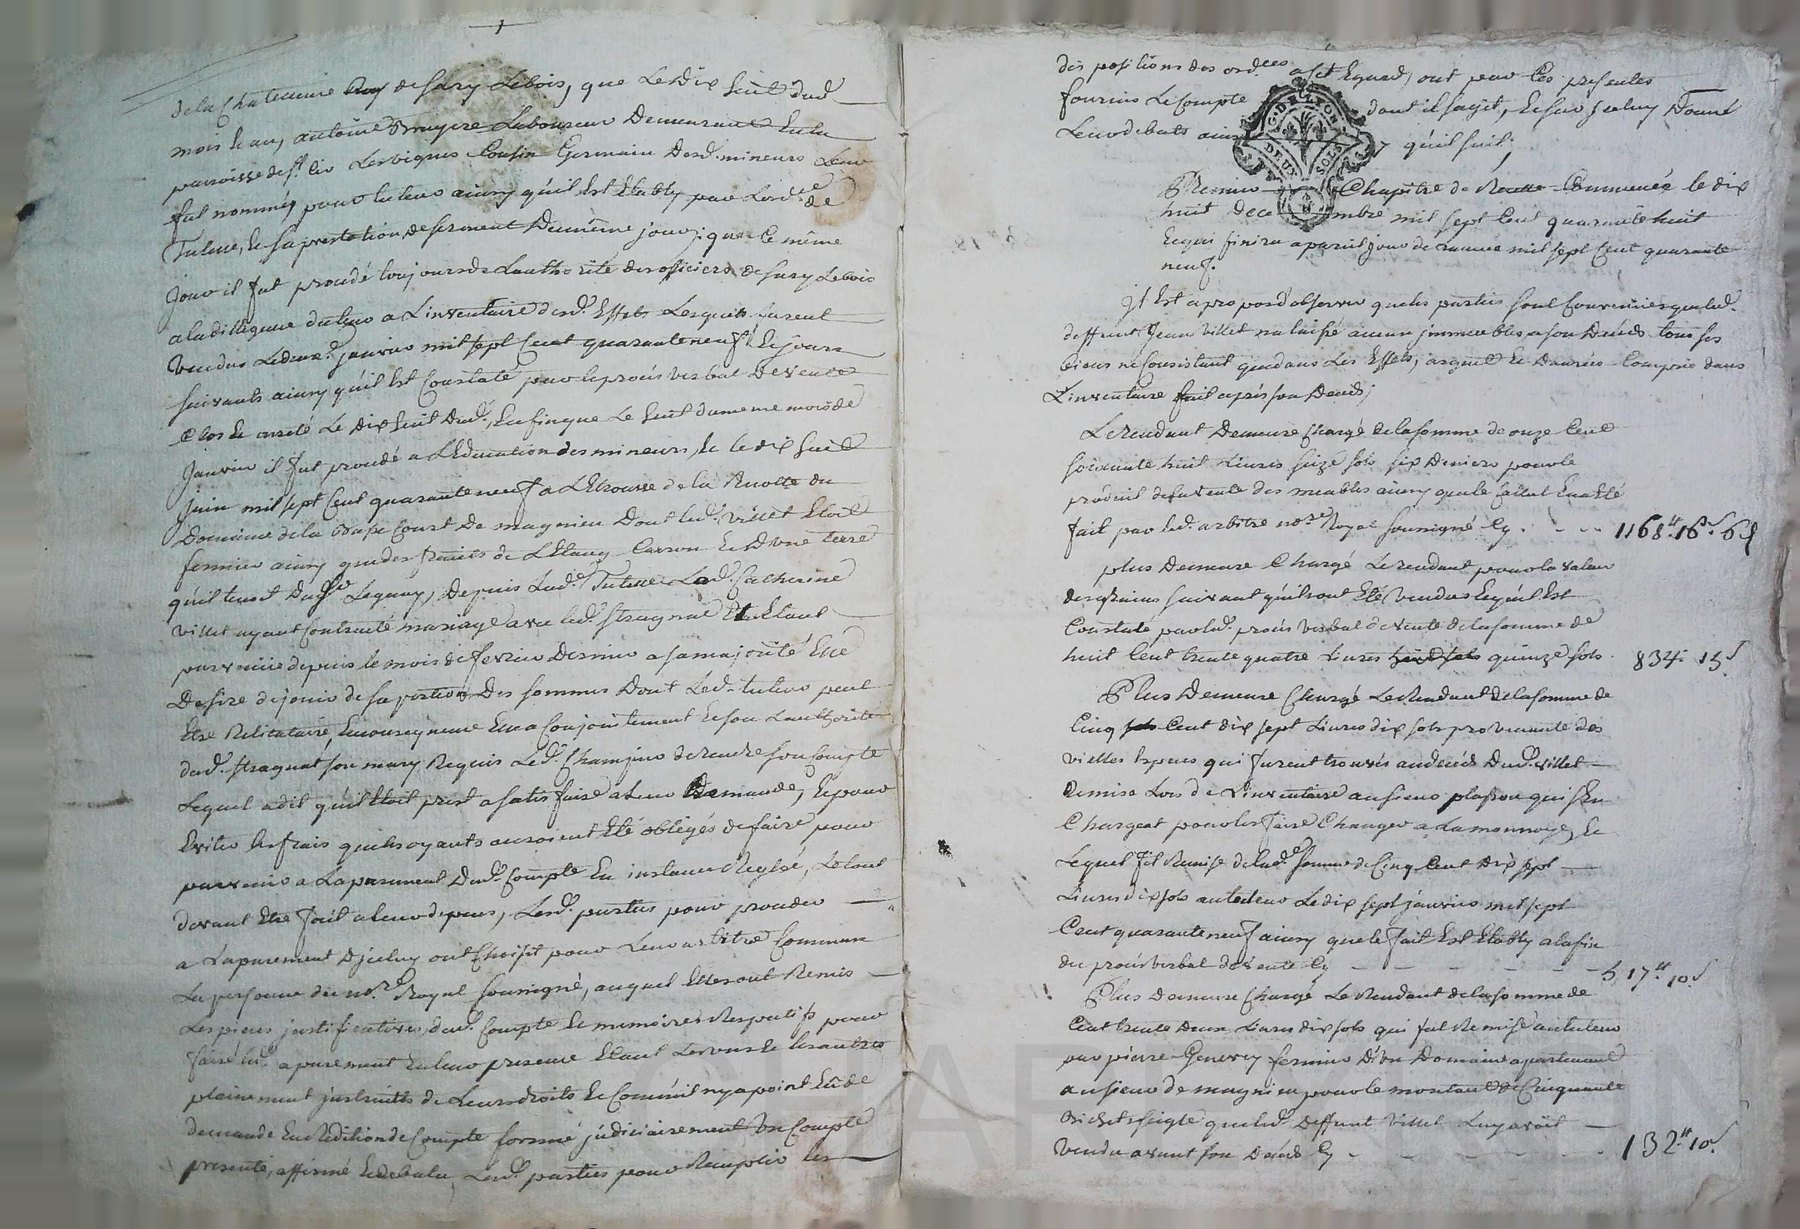 de la Chatelenie Roy de Sury Lebois, que Le Dix huit dud.
mois le au, antoine Bruyere Laboureur Demeurant En la
parroisse de st. Les vignes Cousin Germain Desd. mineurs Leur
fut nommé pour tuteur ainsy qu'il Est Etably par Lord.ce de
Tutelle, Et sa prestation de serment Du même jour; que Le même
jour il fut procedé toujours de L'authorité des officiers de Sury Lebois
a la dilligence du tuteur a L'inventaire desd. Effets Lesquels furent
vendus Le deuxe. janvier mil sept Cent quarante neuf, Et jours
suivants ainsy qu'il Est Constaté par le procés verbal De vente
Clos Et areté Le Dix huit Dud., Enfin que Le huit du meme mois de
Janvier il fut procedé a L'Education des mineurs, Et le dix huit
juin mil sept Cent quarante neuf a L'Etrousse de la Recolte du
Domaine de la Basse Court De magnieu Dont led. villet Etoit
fermier ainsy que des fruits de L'Etang Carron Et D'une terre
qu'il tenoit Du sr. Leguay, Depuis Lad. Tutelle Lad. Catherine
villet ayant Contracté mariage avec led. Stragnat Et Etant
parvenüe depuis le mois de fevrier Dernier a sa majorité Elle
Desire de jouir de sa portion Des sommes Dont Led. tuteur peut
Etre Relicataire, En Consequence Elle a Conjointement Et sous L'authorité
dud. Stragnat son mary Requis Led. de rendre son Compte
Lequel a dit qu'il Etoit prest a satisfaire a Leur Demande, Et pour
Eviter les frais que les oyants auroient Eté obligés de faire pour
parvenir a L'apurement Dud. Compte En instance Reglée, Le tout
devant Etre fait a leur depens, Lesd. parties pour proceder
a L'apurement D'jceluy ont Choisit pour Leur arbitre Commun
La personne du no.re Royal soussigné, auquel Elles ont Remis
Les pieces justificatives dud. Compte Et memoires Respectifs pour
faire led. apurement En leur presence Etant Les uns Et les autres
plainement instruits de Leurs droits Et Comme il n'y a point Eu de
demande En Redition de Compte formé judiciairement un Compte
presenté, affirmé Et debatu, Lesd. parties pour Remplir les
dispositions des ord.ces a cet Egard, ont par Ces presentes
fournis Le Compte dont il s'agit, Et sur jceluy Donné
Leurs debats ainsy qu'il suit;
G. DE LYON
DEUX SOLS
Premier Chapitre de Recette Commencée le dix
huit decembre mil sept Cent quarante huit
Et qui finira a pareil jour de L'année mil sept Cent quarante
neuf.
Jl Est a propos d'observer que les parties sont Convenües que led.
deffunt Jean villet n'a laissé aucun jmmeubles a son Decéds tous ses
biens ne Consistant que dans Les Effets, argent Et Danrées Compris dans
L'inventaire fait aprés son Decéds;
Le rendant Demeure Chargé de la somme de onze Cent
soixante huit Livres seize sols six Deniers pour le
produit de la vente des meubles ainsy que le Calcul En a Eté
fait par led. arbitre no.re Royal soussigné Cy . - - .. 1168.# 16.s 6 d
plus Demeure Chargé Le rendant pour la valeur
des grains suivant qu'ils ont Eté vendus Et qu'il Est
Constaté par led. procés verbal de vente de la somme de
huit Cent trente quatre Livres quinze sols. 834. 15.s
Plus Demeure Chargé Le Rendant de la somme de
Cinq Cent dix sept Livres dix sols provenante des
vielles Especes qui furent trouvés au decéds Dud. villet
Remise Lors de L'inventaire au sieur plasson qui s'En
Chargeat pour les faire Changer a La monnoye, Et
Lequel fit Remise de lad. somme de Cinq Cent Dix sept
Livres dix sols au tuteur Le dix sept janvier mil sept
Cent quarante neuf ainsy que le fait Est Etably a la fin
du procés verbal de vente Cy - - - - - 517.# 10.s
Plus demeure Chargé Le Rendant de la somme de
Cent trente Deux Livres dix sols qui fut Remise au tuteur
par pierre Genevey fermier D'un Domaine apartenant
au sieur de magnieu pour le montant de Cinquante
Bichets seigle que led. Deffunt villet Luy avoit
vendu avant son Decéds Cy - - - - 132.# 10.s